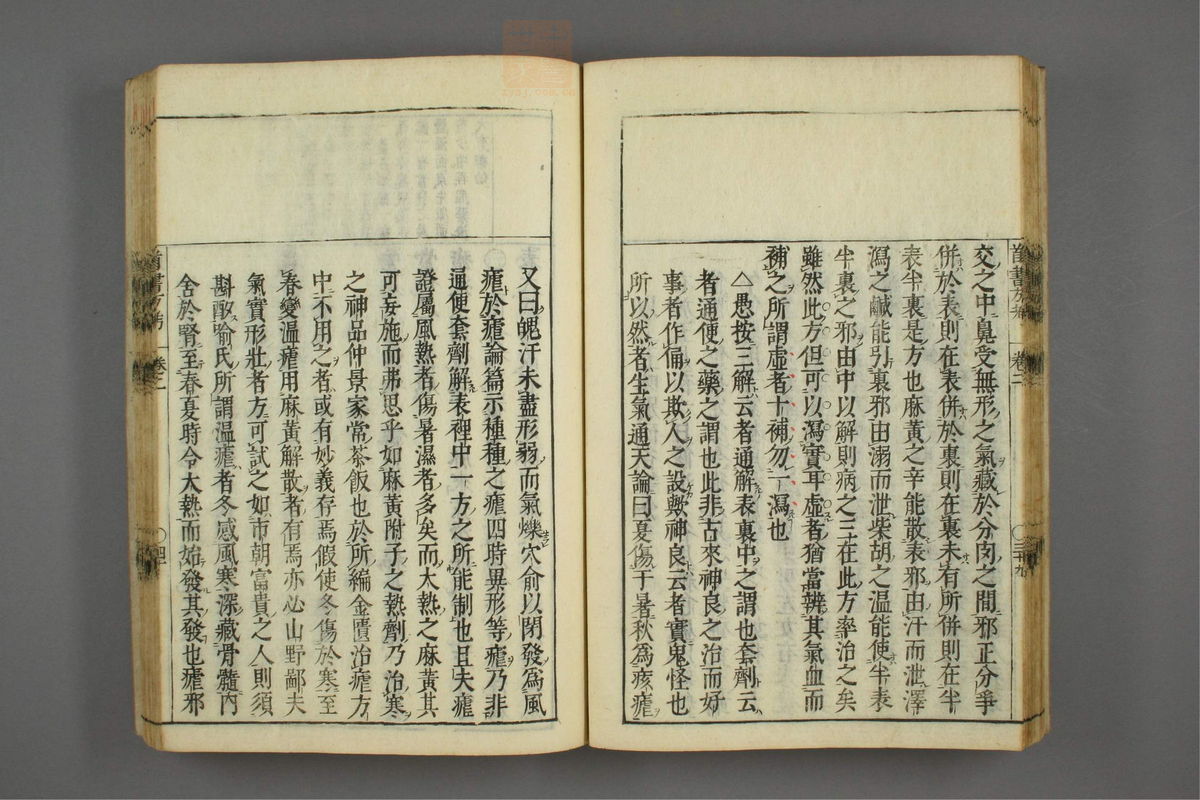 交之中鼻受無形之氣藏於分肉之間邪正分爭
併於表則在表併於裏則在裏未有所併則在半
表半裏是方也麻黄之辛能散表邪由汗而泄澤
瀉之鹹能引裏邪由溺而泄柴胡之温能使半表
半裏之邪由中以解則病之三在此方率治之矣
雖然此方但可以瀉實耳虛者猶當辨其氣血而
補之所謂虛者十補勿一瀉也
△愚按三解云者通解表裏中之謂也套劑云
者通便之藥之謂也此非古來神良之治而好
事者作俑以欺人之設歟神良云者實鬼怪也
所以然者生氣通天論曰夏傷于暑秋爲痎瘧
卷二
三十九
又曰魄汗未盡形弱而氣爍穴俞以閉發爲風
瘧於瘧論篇示種種之瘧四時異形等瘧乃非
通便套劑解表裡中一方之所能制也且夫瘧
證屬風熱者傷暑濕者多矣而大熱之麻黄其
可妄施而弗思乎如麻黄附子之熱劑乃治寒
之神品仲景家常茶飯也於所編金匱治瘧方
中不用之者或有妙義存焉假使冬傷於寒至
春變温瘧用麻黄解散者有焉亦必山野鄙夫
氣實形壯者方可試之如市朝富貴之人則須
斟酌喻氏所謂温瘧者冬感風寒深藏骨髓内
舍於腎至春夏時令大熱而始發其發也瘧邪
首書方考
卷之二
四十